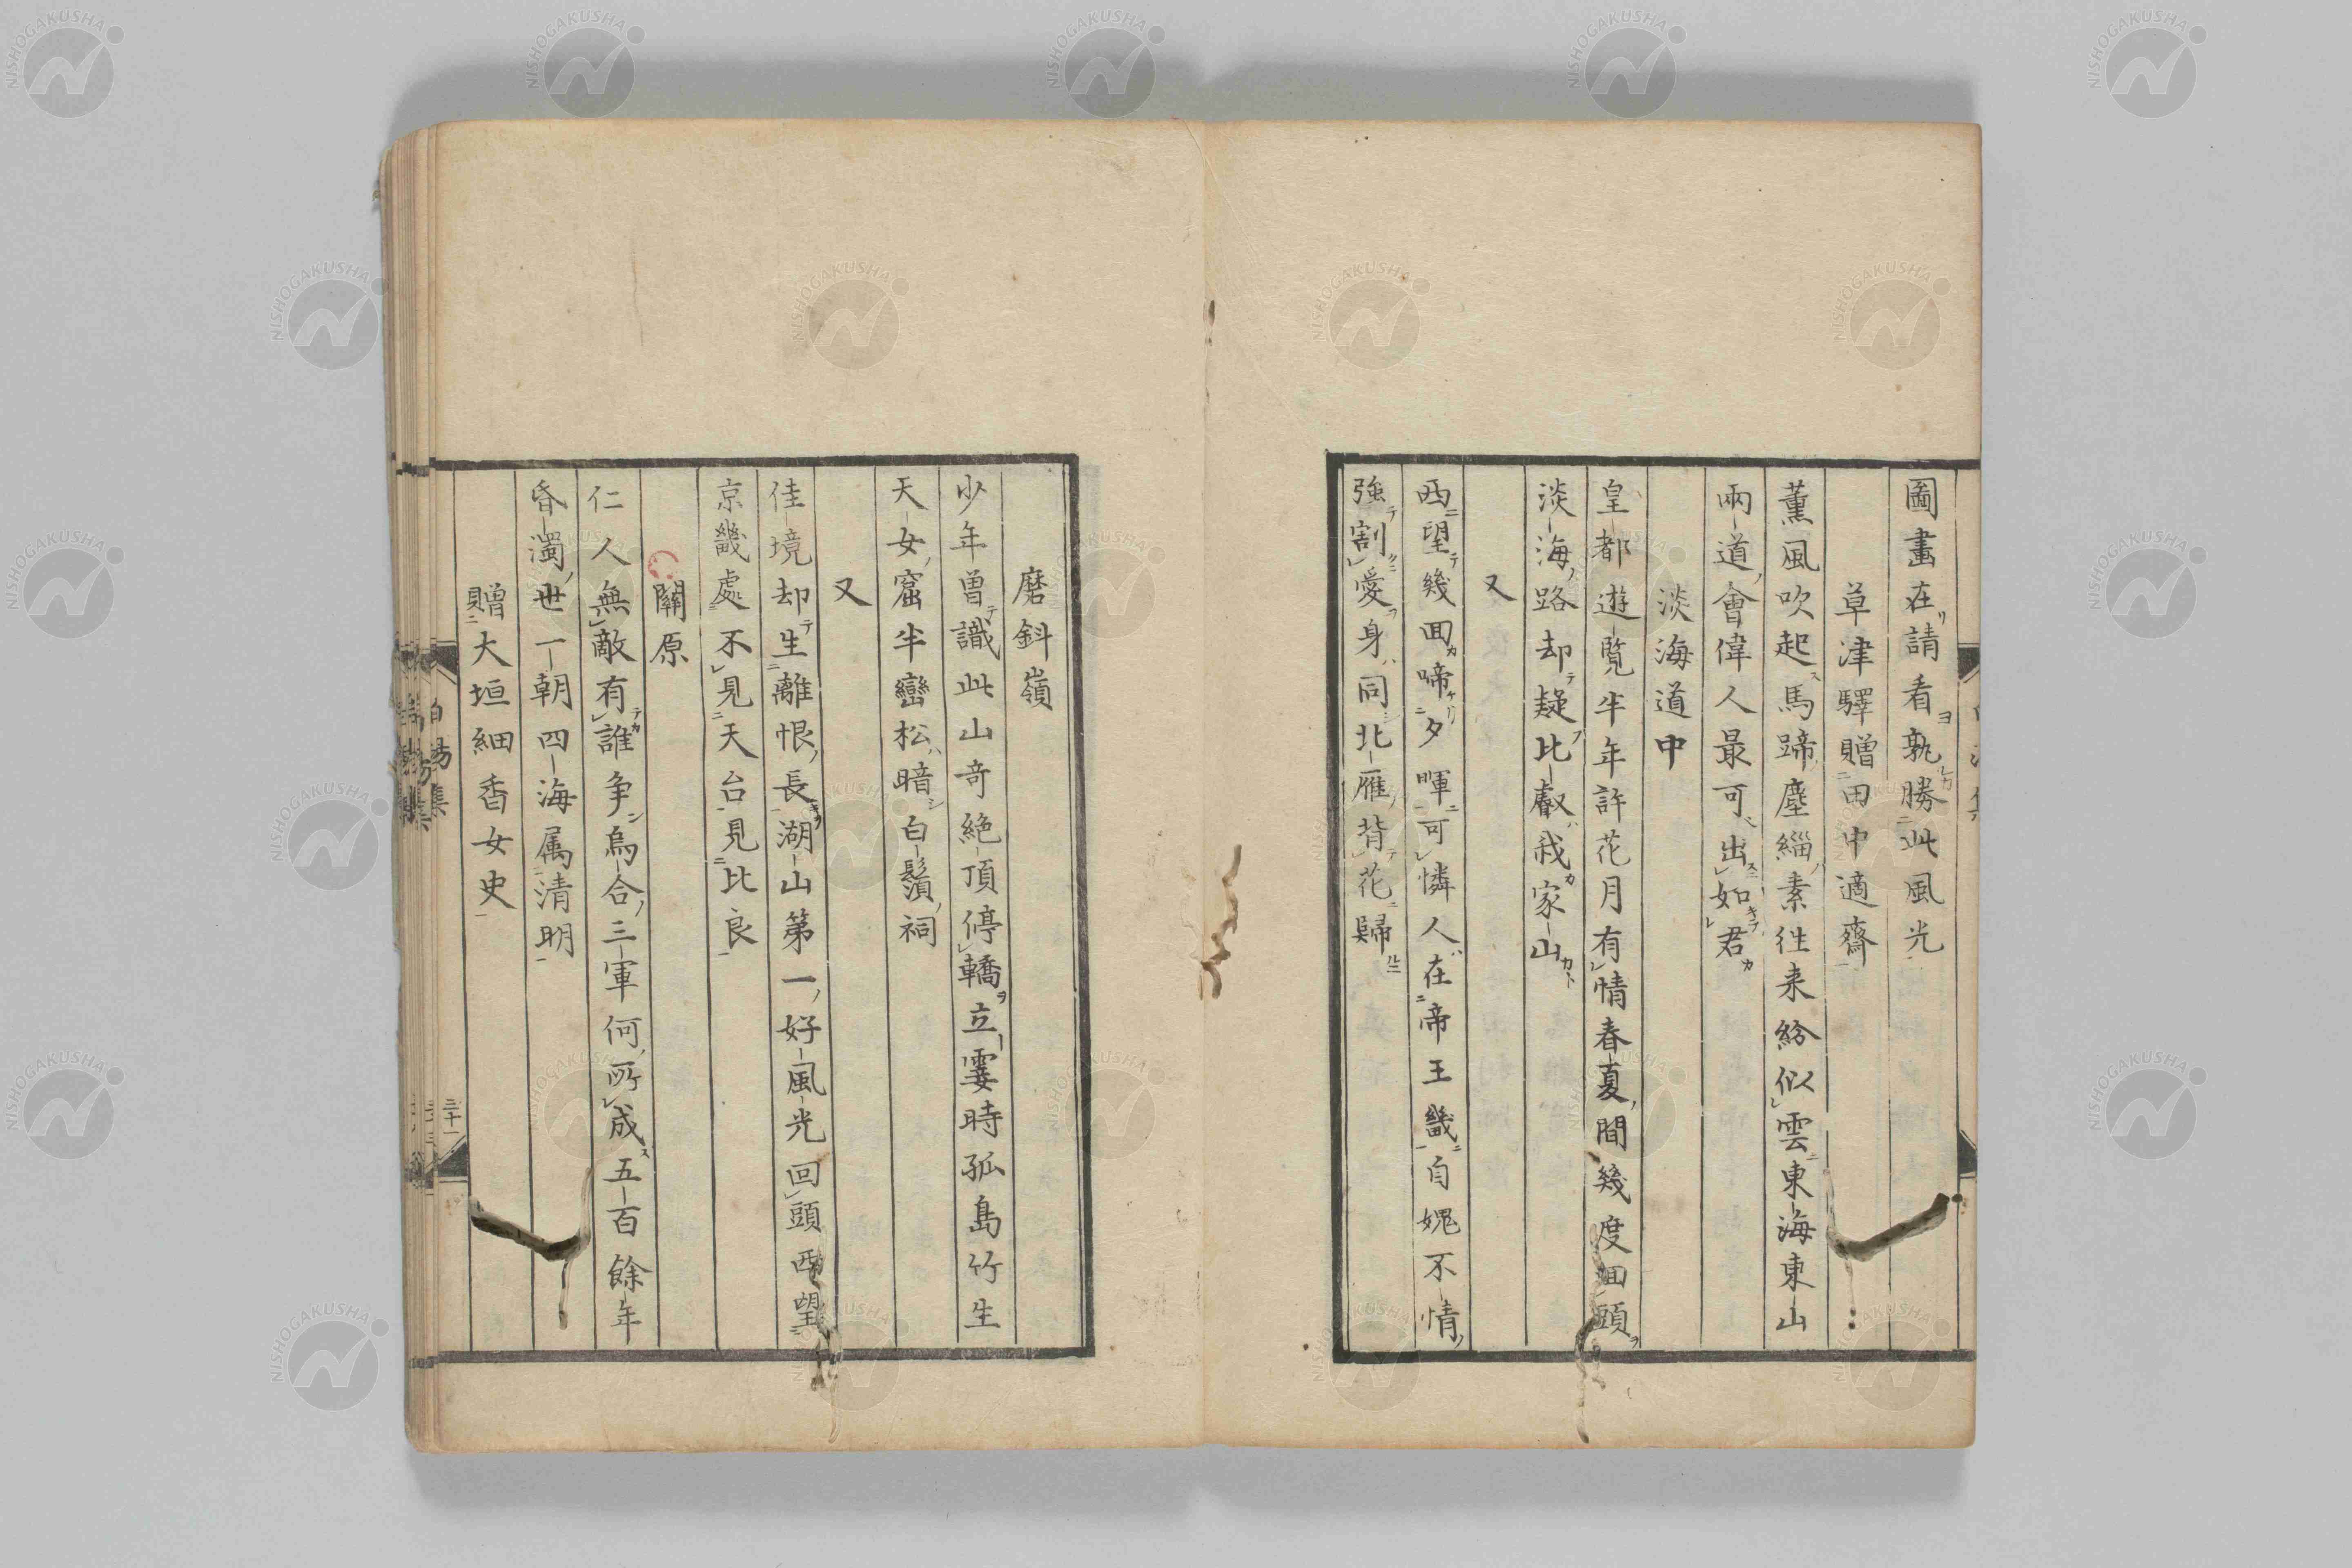 圖畫在請看孰勝此風光
草津驛贈田中適齋
薰風吹起馬蹄塵緇素徃来紛似雲東海東山
兩道會偉人最可出如君
淡海道中
皇都遊覧半年許花月有情春夏間幾度囬頭
淡海路却疑比叡我家山
又
西望幾囬啼夕暉可憐人在帝王畿自媿不情
強割愛身同北雁背花歸
磨斜嶺
少年曽識此山竒絶頂停轎立霎時孤島竹生
天女窟半巒松暗白鬚祠
又
佳境却生離恨長湖山第一好風光回頭西望
京畿處不見天台見比良
關原
仁人無敵有誰争烏合三軍何所成五百餘年
昏濁世一朝四海属清明
贈大垣細香女史